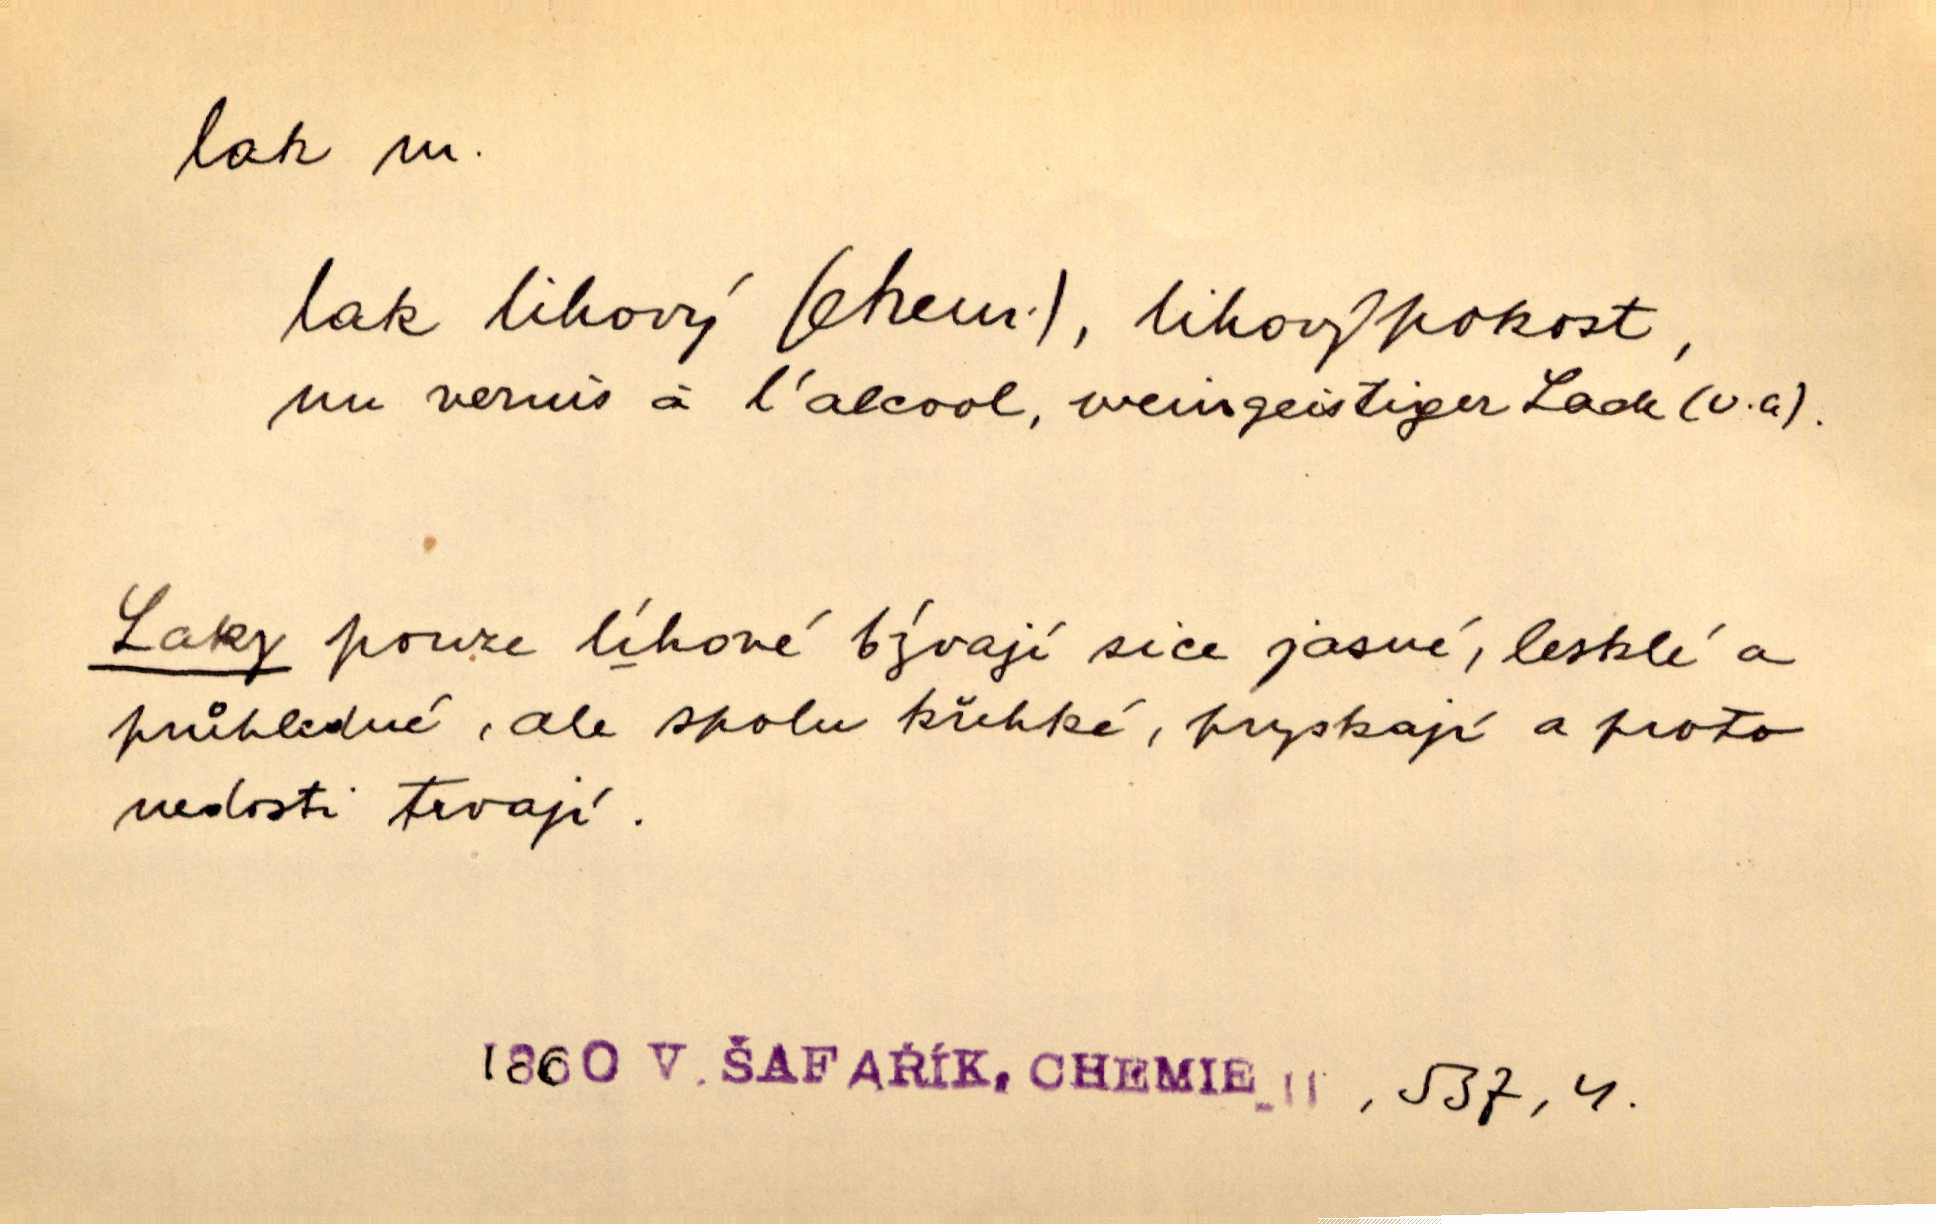 lak m.
lak lihový (chem.), lihový pokost,
un vernis à l'alcool, weingeistiger Lack (v.a).
Laky pouze líhové bývají sice jasné, lesklé a
průhledné, ale spolu křehké, pryskají a proto
nedosti trvají.
1860 V. ŠAFAŘÍK, CHEMIE II, 537, 4.